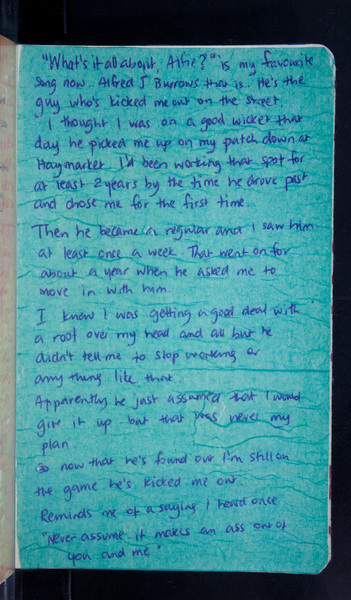 "What's it all about, Alfie?" is my favourite
song now. Alfred J Burrows that is. He's the
guy who's kicked me out on the street.
I thought I was on a good wicket that
day he picked me up on my patch down at
Haymarket. I'd been working that spot for
at least 2 years by the time he drove past
and chose me for the first time.
Then he became a regular and I saw him
at least once a week. That went on for
about a year when he asked me to
move in with him.
I knew I was getting a good deal with
a roof over my head and all but he
didn't tell me to stop working or
any thing like that.
Apparently he just assumed that I would
give it up but that was never my
plan.
So now that he's found out I'm still on
the game he's kicked me out.
Reminds me of a saying I heard once
"Never assume it makes an ass out of
you and me"